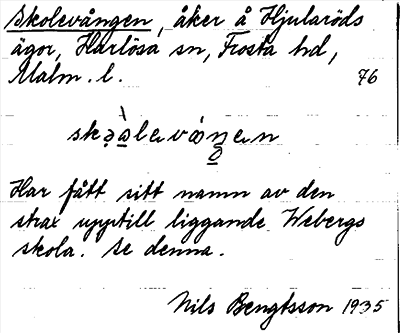 Skolevången, åker å Hjularöds
ägor, Harlösa sn, Frosta hd,
Malm. l. 76
Har fått sitt namn av den
strax upptill liggande Webergs
skola. Se denna.
Nils Bengtsson 1935